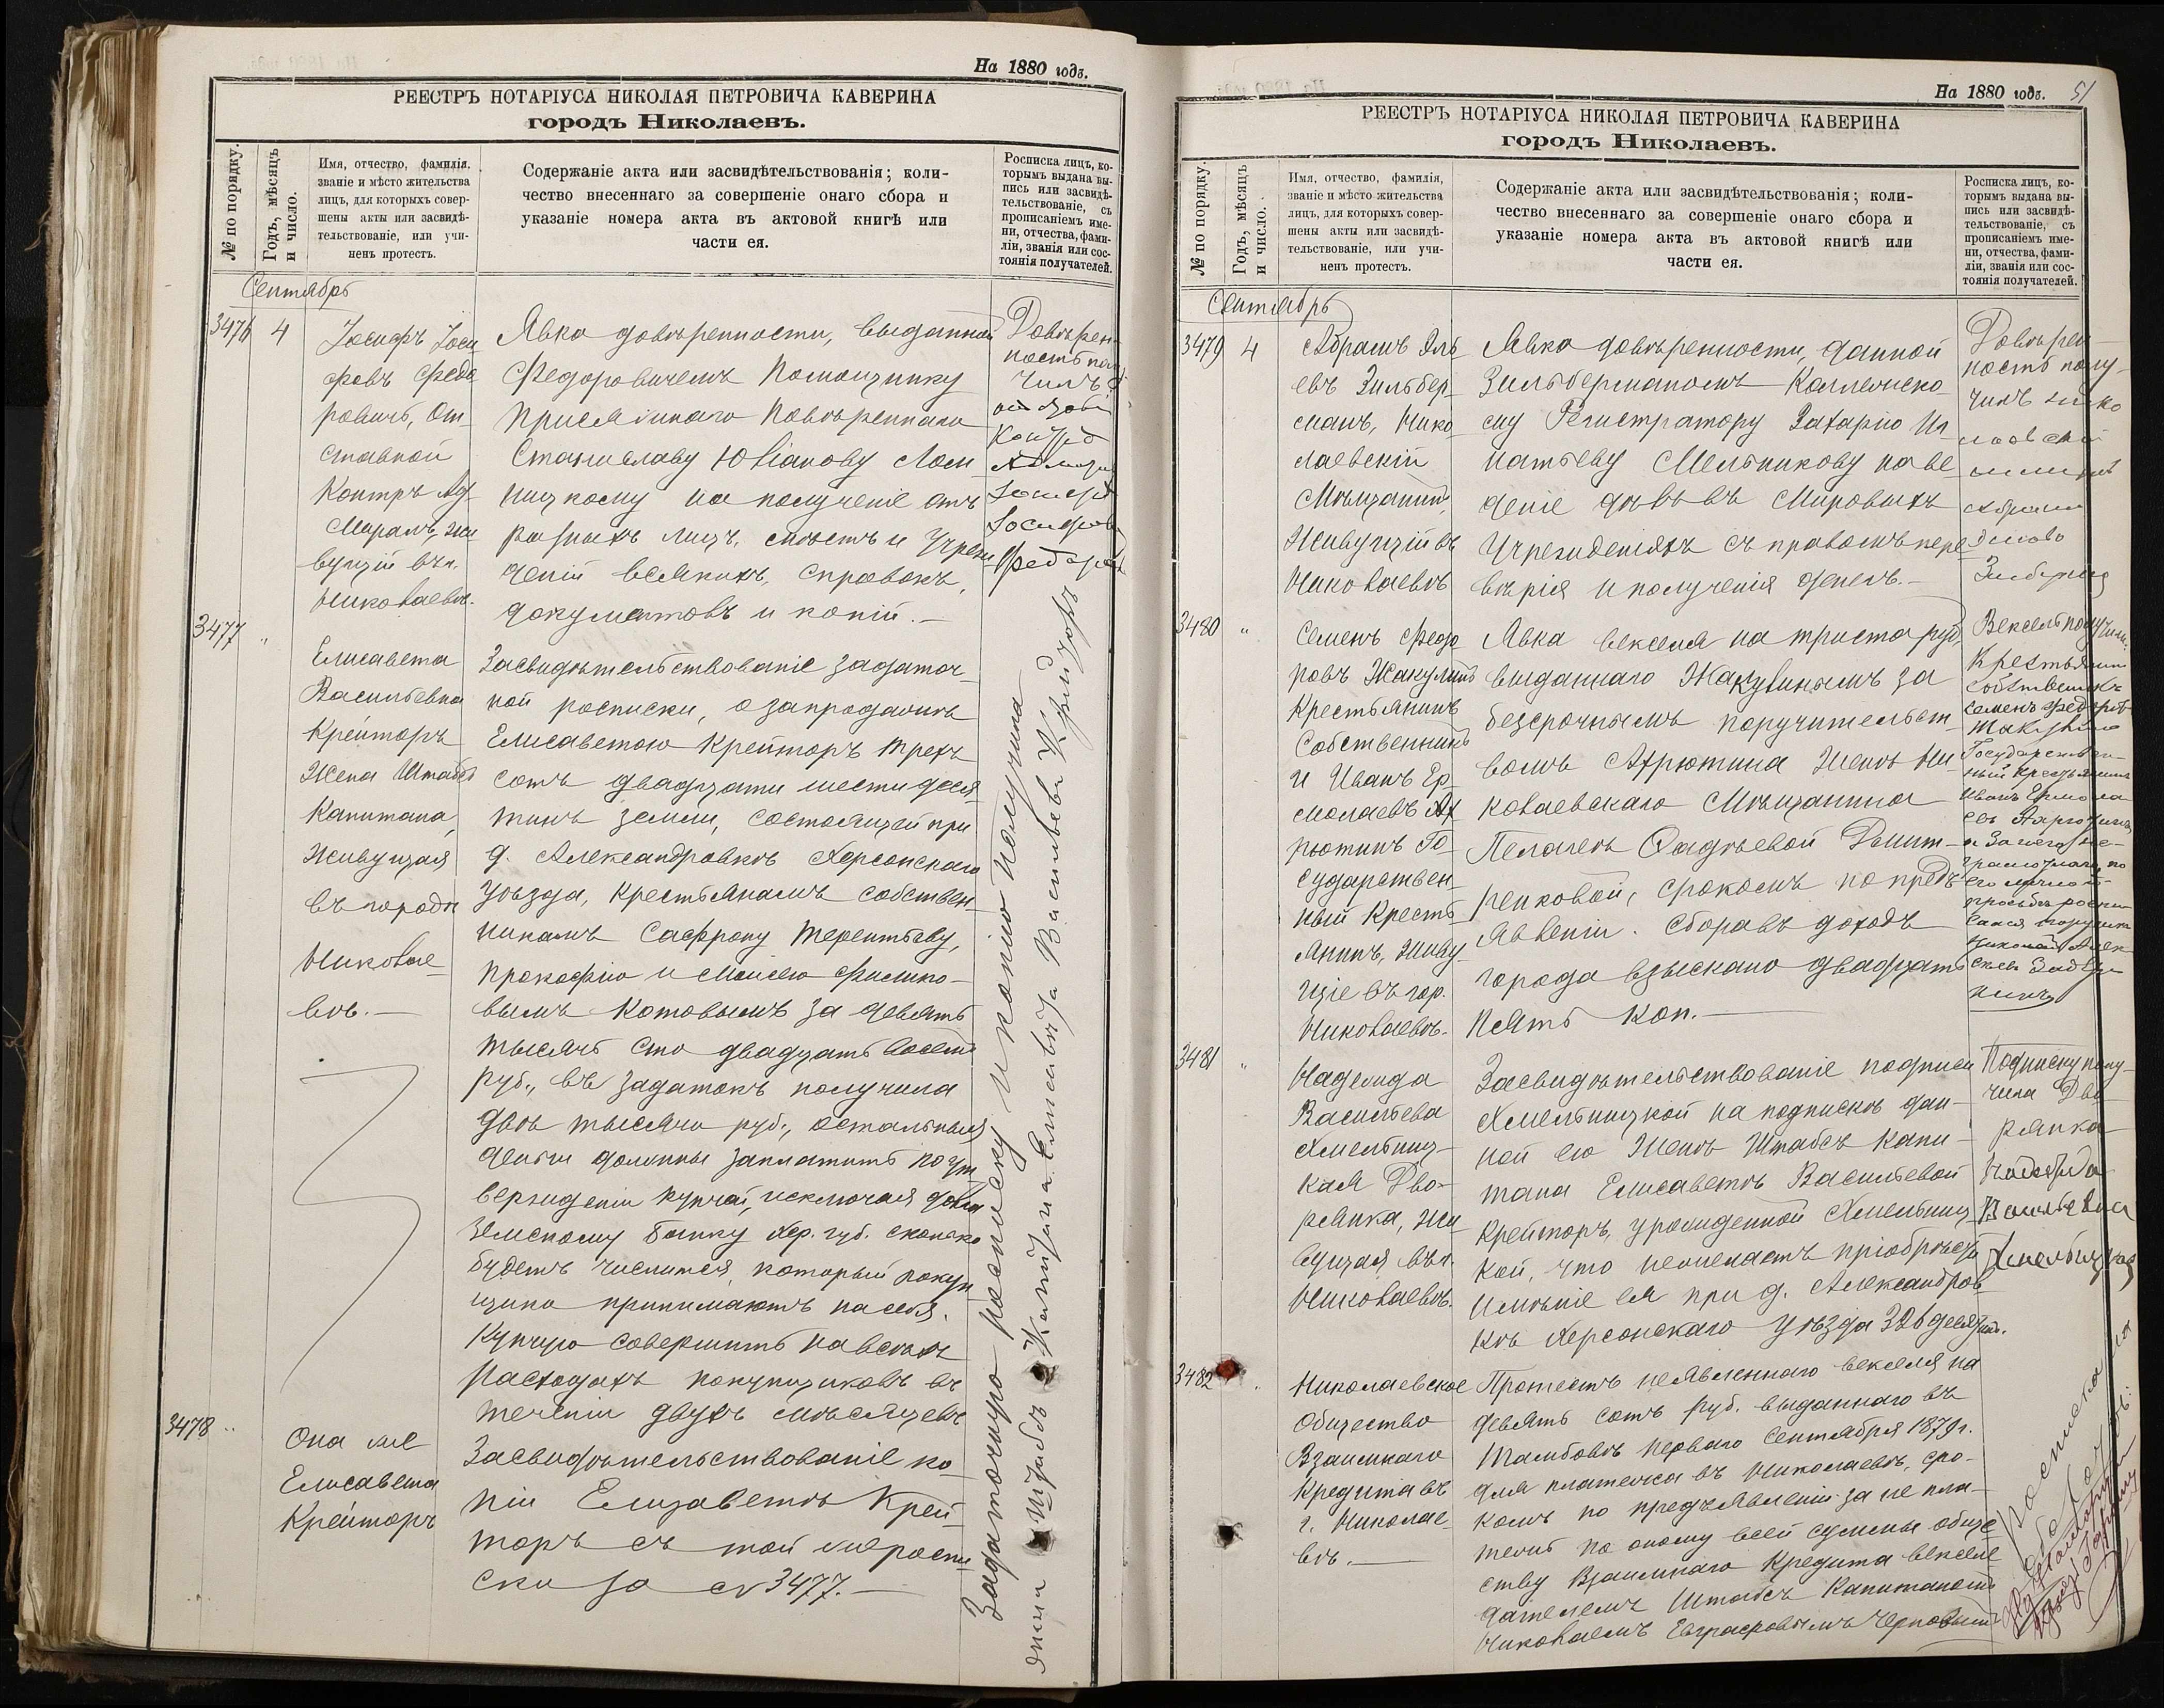 На 1880 годъ.
РЕЕСТРЪ НОТАРІУСА НИКОЛАЯ ПЕТРОВИЧА КАВЕРИНА
городъ Николаевъ.
№ по порядку.
Годъ, мѣсяцъ
и число.
Имя, отчество, фамилія,
званіе и мѣсто жительства
лицъ, для которыхъ совер-
шены акты или засвидѣ-
тельствованіе, или учи-
ненъ протестъ.
Содержаніе акта или засвидѣтельствованія; коли-
чество внесеннаго за совершеніе онаго сбора и
указаніе номера акта въ актовой книгѣ или
части ея.
Росписка лицъ, ко-
торымъ выдана вы-
пись или засвидѣ-
тельствованіе, съ
прописаніемъ име-
ни, отчества, фами-
ліи, званія или сос-
тоянія получателей.
Сентябрь
3476 4
Іосифъ Іоси
фовъ Федо
ровичъ, От-
ставной
Контръ Ад-
миралъ, жи
вущій въ г.
Николаевѣ.
Явка довѣренности, выданной
Федоровичемъ Помощнику
Присяжнаго Повѣреннаго
Станиславу Юліанову Лом
ницкому на полученіе отъ
разныхъ лицъ, мѣстъ и Учреж
деній всякихъ справокъ,
документовъ и копій.—
Довѣрен-
ность полу
чилъ
Контръ
Іосифъ
Іосифовъ
Федоров
3477 "
Елисавета
Васильевна
Крейторъ
Жена Штабсъ
Капитана,
Живущая
въ городѣ
Николае-
вѣ.—
Засвидѣтельствованіе задаточ-
ной росписки, о запродажѣ
Елисаветою Крейторъ трехъ
сотъ двадцати шести деся-
тинъ земли, состоящей при
д. Александровкѣ Херсонскаго
уѣзда, крестьянамъ собствен-
никамъ Сафрону Терентьеву,
Прокофію и Моисею Филипо-
вымъ Котовымъ за девять
тысячъ сто двадцать восемь
руб., въ задатокъ получила
двѣ тысячи руб., остальныя
деньги должны заплатить по ут
вержденіи купчей, исключая долга
Земскому Банку Хер. губ. сколько
будетъ числится, который покуп
щики принимаютъ на себя.
Купчую совершить на всѣхъ
расходахъ покупщиковъ въ
теченіи двухъ мѣсяцевъ
3478 "
Она же
Елисавета
Крейторъ
Засвидѣтельствованіе ко-
піи Елизаветѣ Крей-
торъ съ той же роспи
ски за № 3477.—
Задаточную росписку и копію получила
жена Штабсъ Капитана Елисавета Васильева Крейторъ
На 1880 годъ. 51
РЕЕСТРЪ НОТАРІУСА НИКОЛАЯ ПЕТРОВИЧА КАВЕРИНА
городъ Николаевъ.
№ по порядку.
Годъ, мѣсяцъ
и число.
Имя, отчество, фамилія,
званіе и мѣсто жительства
лицъ, для которыхъ совер-
шены акты или засвидѣ-
тельствованіе, или учи-
ненъ протестъ.
Содержаніе акта или засвидѣтельствованія; коли-
чество внесеннаго за совершеніе онаго сбора и
указаніе номера акта въ актовой книгѣ или
части ея.
Росписка лицъ, ко-
торымъ выдана вы-
пись или засвидѣ-
тельствованіе, съ
прописаніемъ име-
ни, отчества, фами-
ліи, званія или сос-
тоянія получателей.
Сентябрь
3479 4
Абрамъ Эль-
евъ Зильбер-
манъ, Нико
лаевскій
Мѣщанинъ,
Живущій въ
Николаевѣ
Явка довѣренности, данной
Зильберманомъ Коллежско-
му Регистратору Захарію Иг-
натьеву Мельникову на ве-
деніе дѣлъ въ Мировыхъ
Учрежденіяхъ съ правомъ пере
вѣрія и полученія денегъ.—
Довѣрен-
ность полу-
чилъ Нико
лаевскій
Абрам
Зильберман
3480 "
Семенъ Федо
ровъ Жакулинъ
Крестьянинъ
Собственникъ
и Иванъ Ер-
молаевъ Ах
рютинъ Го-
сударствен-
ный Кресть
янинъ, Живу-
щіе въ гор.
Николаевѣ.
Явка векселя на триста руб.
выданнаго Жакулинымъ за
безсрочнымъ поручительст
вомъ Ахрютина Женѣ Ни-
колаевскаго Мѣщанина
Пелагеѣ Фадѣевой Дмит-
ренковой, срокомъ по предъ
явленіи. Сбора въ доходъ
города взыскано двадцать
пять коп.—
Вексель получили:
Крестьянин
собственникъ
Семенъ Федоров
Государствен-
ный Крестьянин
Иванъ Ермола
евъ
а за него не-
грамотнаго по
его личной
просьбѣ роспи
сался
3481 "
Надежда
Васильева
Хмельниц-
кая Дво-
рянка, Жи
вущая въ г.
Николаевѣ.
Засвидѣтельствованіе подписи
Хмельницкой на подпискѣ дан-
ной ею Женѣ Штабсъ Капи-
тана Елисаветѣ Васильевой
Крейторъ, урожденной Хмельниц
кой, что нежелаетъ пріобрѣсти
имѣніе ея при д. Александров
кѣ Херсонскаго уѣзда 326 десятин.
Подписку полу-
чила Дво-
рянка
Надежда
Васильевна
Хмельницкая
3482 "
Николаевское
Общество
Взаимнаго
Кредита въ
г. Николае-
вѣ.—
Протестъ неявленнаго векселя на
девять сотъ руб. выданнаго въ
Тамбовѣ перваго Сентября 1879 г.
для платежа въ Николаевѣ, сро-
комъ по предъявленіи за не пла-
тежъ по оному всей суммы обще
ству Взаимнаго Кредита векселе
дателемъ Штабсъ Капитаномъ
Николаемъ Евграфовымъ